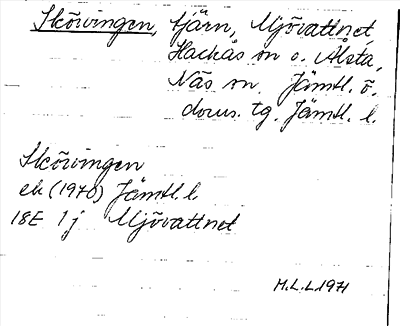 Skörvingen, tjärn, Mjövattnet,
Hackås sn o.Ålsta,
Näs sn. Jämtl. ö.
doms. tg. Jämtl. l.
Skörvingen
ek (1970) Jämtl. l.
18E 1j Mjövattnet
M.L.L. 1971